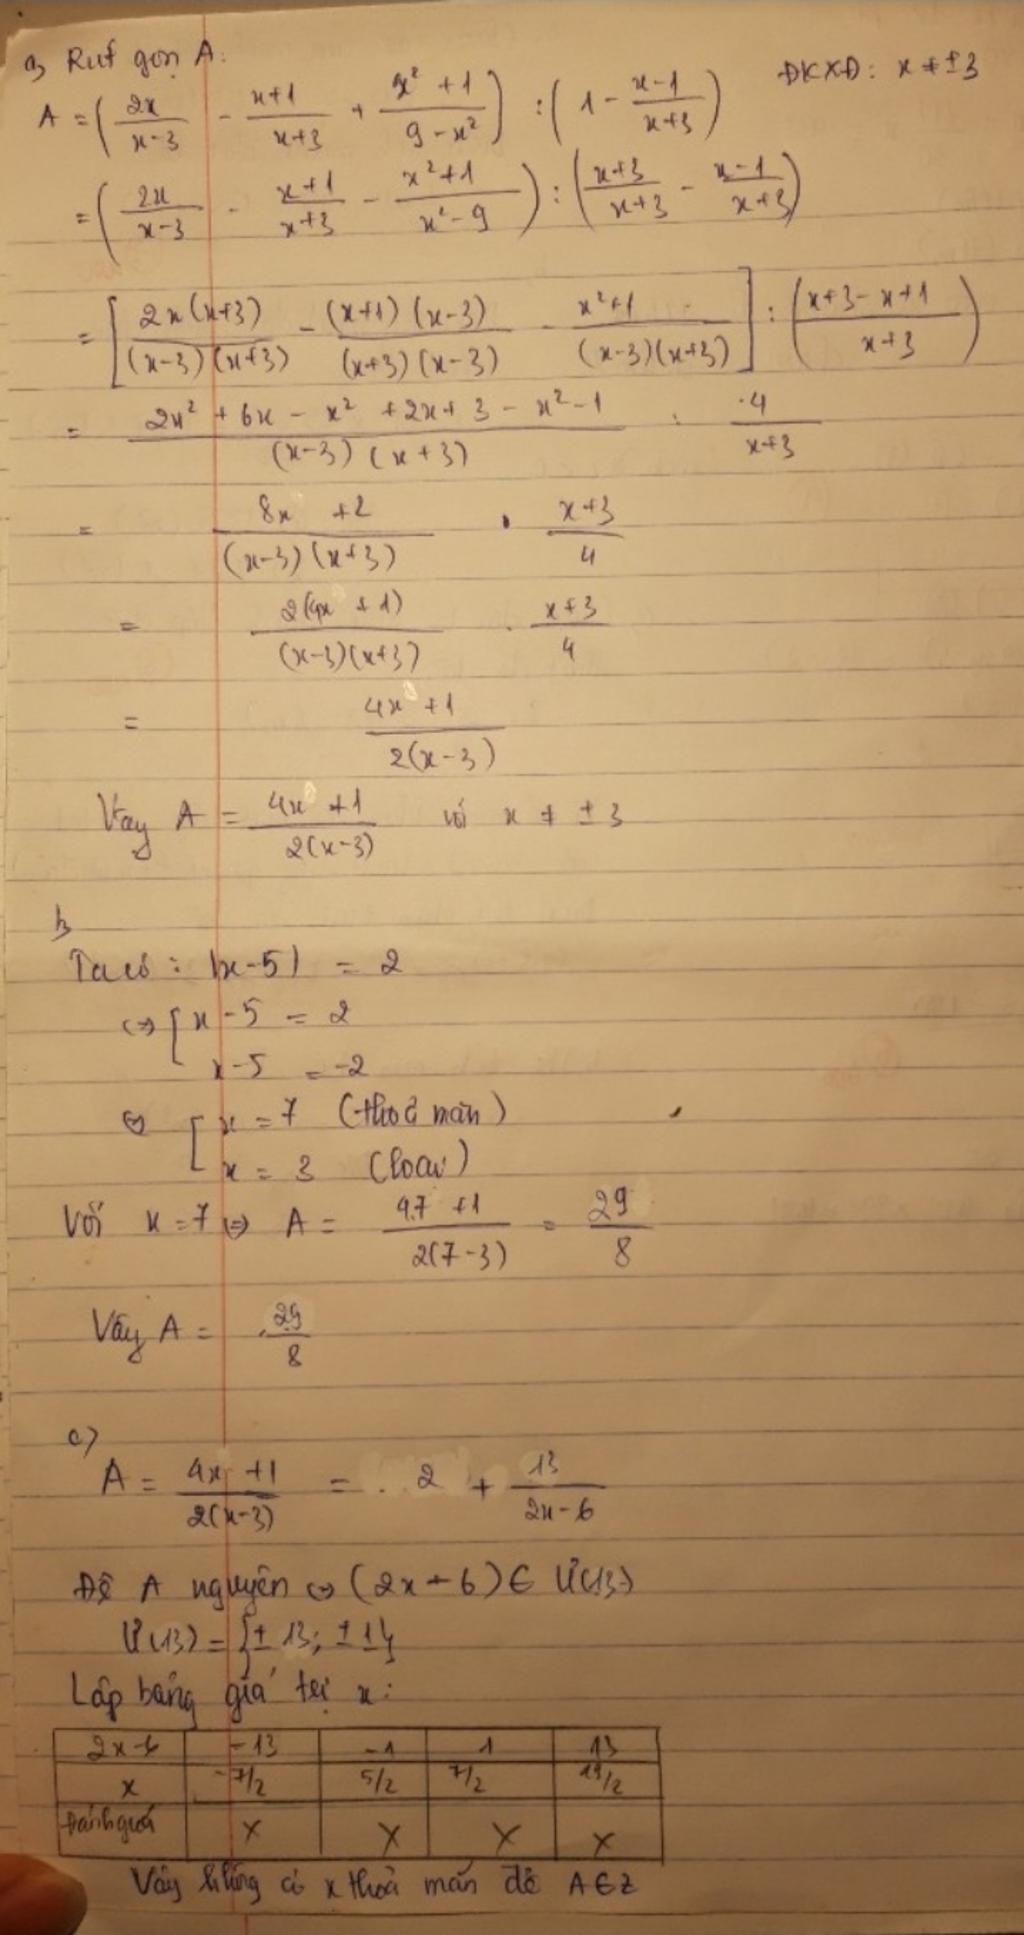 a, Rút gọn A. ĐKXĐ: x ≠ ±3
A = (2x/(x-3) - (x+1)/(x+3) + (x² + 1)/(9 - x²)) : (1 - (x-1)/(x+3))
= (2x/(x-3) - (x+1)/(x+3) - (x²+1)/(x²-9)) : ((x+3)/(x+3) - (x-1)/(x+3))
= [2x(x+3)/((x-3)(x+3)) - (x+1)(x-3)/((x+3)(x-3)) - (x²+1)/((x-3)(x+3))] : ((x+3-x+1)/(x+3))
= (2x² + 6x - x² + 2x + 3 - x² - 1)/((x-3)(x+3)) : 4/(x+3)
= (8x + 2)/((x-3)(x+3)) . (x+3)/4
= 2(4x + 1)/((x-3)(x+3)) . (x+3)/4
= (4x + 1)/(2(x-3))
Vậy A = (4x + 1)/(2(x-3)) với x ≠ ±3
b,
Ta có : |x-5| = 2
⇔ [ x - 5 = 2
x-5 = -2
⇔ [ x = 7 (thoả mãn)
x = 3 (loại)
Với x = 7 ⇔ A = (4.7 + 1)/(2(7-3)) = 29/8
Vậy A = 29/8
c)
A = (4x + 1)/(2(x-3)) = 2 + 13/(2x-6)
Để A nguyên ⇔ (2x - 6) ∈ Ư(13)
Ư(13) = {± 13; ± 1}
Lập bảng giá tại x:
2x-6 -13 -1 1 13
x -7/2 5/2 7/2 19/2
Đánh giá X X X X
Vậy không có x thoả mãn để A ∈ Z